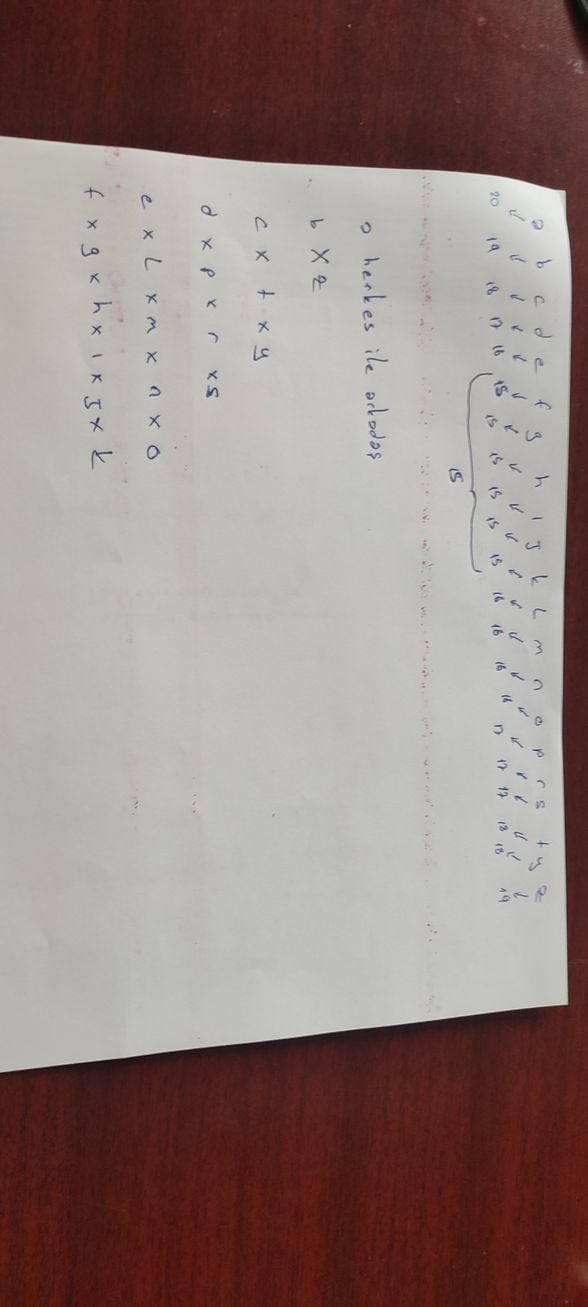 a b c d e f g h ı J k L m n o p r s t y z
20 19 18 17 16 15 15 15 15 15 15 16 16 16 16 17 17 17 18 18 19
15
a herkes ile arkadaş
b x z
c x t x y
d x p x r x s
e x L x m x n x o
f x g x h x ı x J x k